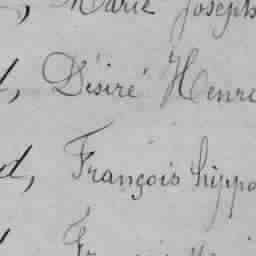 , Marie Joseph
, Désiré Henri
d, François hippo